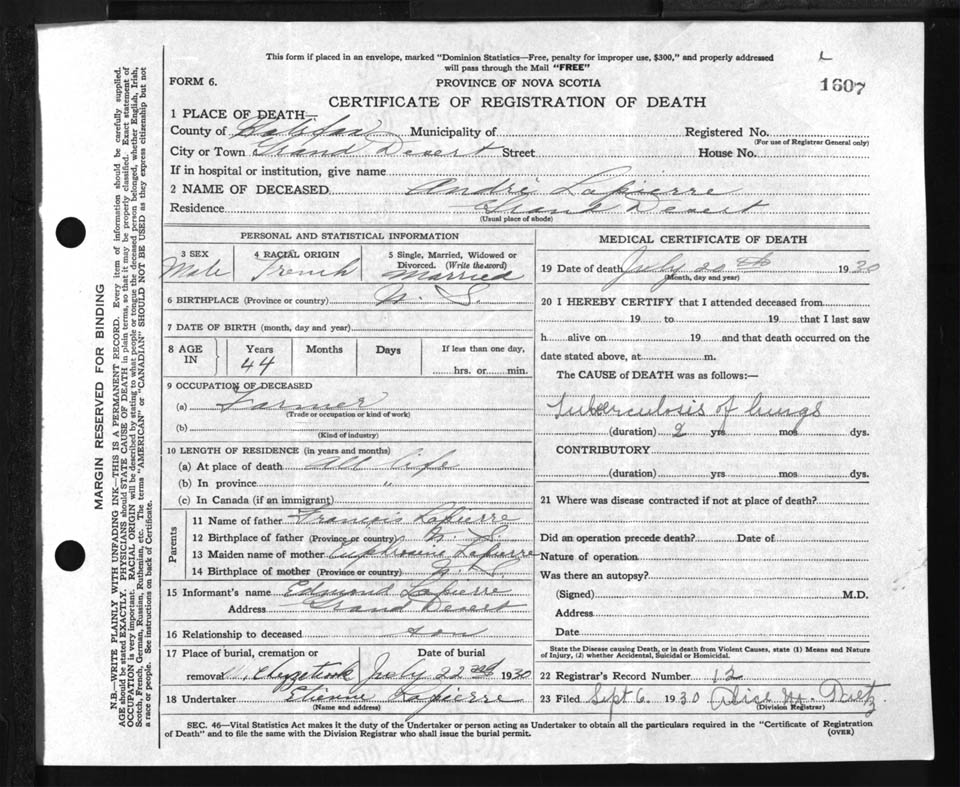 This form if placed in an envelope, marked "Dominion Statistics—Free, penalty for improper use, $300," and properly addressed
will pass through the Mail "FREE"
1607
FORM 6.
PROVINCE OF NOVA SCOTIA
CERTIFICATE OF REGISTRATION OF DEATH
1 PLACE OF DEATH—
County of Halifax Municipality of Registered No.
(For use of Registrar General only)
City or Town Grand Desert Street House No.
If in hospital or institution, give name
2 NAME OF DECEASED André Lapierre
Residence Grand Desert
(Usual place of abode)
PERSONAL AND STATISTICAL INFORMATION
3 SEX Male
4 RACIAL ORIGIN French
5 Single, Married, Widowed or Divorced. (Write the word) Married
6 BIRTHPLACE (Province or country) N. S.
7 DATE OF BIRTH (month, day and year)
8 AGE IN Years 44 Months Days If less than one day, hrs. or min.
9 OCCUPATION OF DECEASED
(a) Farmer
(Trade or occupation or kind of work)
(b)
(Kind of industry)
10 LENGTH OF RESIDENCE (in years and months)
(a) At place of death all life
(b) In province "
(c) In Canada (if an immigrant)
Parents
11 Name of father François Lapierre
12 Birthplace of father (Province or country) N. S.
13 Maiden name of mother Lapierre
14 Birthplace of mother (Province or country) N. S.
15 Informant's name Edmund Lapierre
Address Grand Desert
16 Relationship to deceased son
17 Place of burial, cremation or removal Chezzetcook Date of burial July 22nd 1930
18 Undertaker Etienne Lapierre
(Name and address)
MEDICAL CERTIFICATE OF DEATH
19 Date of death July 20th 1930
(Month, day and year)
20 I HEREBY CERTIFY that I attended deceased from
19 to 19 that I last saw
h alive on 19 and that death occurred on the
date stated above, at m.
The CAUSE of DEATH was as follows:—
Tuberculosis of lungs
(duration) 2 yrs mos dys.
CONTRIBUTORY
(duration) yrs mos dys.
21 Where was disease contracted if not at place of death?
Did an operation precede death? Date of
Nature of operation
Was there an autopsy?
(Signed) M.D.
Address
Date
State the Disease causing Death, or in death from Violent Causes, state (1) Means and Nature
of Injury, (2) whether Accidental, Suicidal or Homicidal.
22 Registrar's Record Number 12
23 Filed Sept 6. 1930 Alice M.
(Division Registrar)
SEC. 46—Vital Statistics Act makes it the duty of the Undertaker or person acting as Undertaker to obtain all the particulars required in the "Certificate of Registration
of Death" and to file the same with the Division Registrar who shall issue the burial permit.
(OVER)
MARGIN RESERVED FOR BINDING
N.B.—WRITE PLAINLY WITH UNFADING INK—THIS IS A PERMANENT RECORD. Every item of information should be carefully supplied.
AGE should be stated EXACTLY. PHYSICIANS should STATE CAUSE OF DEATH in plain terms, so that it may be properly classified. Exact statement of
OCCUPATION is very important. RACIAL ORIGIN will be described by stating to what people or tongue the deceased person belonged, whether English, Irish,
Scotch, French, German, Russian, Ruthenian, etc. The terms "AMERICAN" or "CANADIAN" SHOULD NOT BE USED as they express citizenship but not
a race or people. See instructions on back of Certificate.